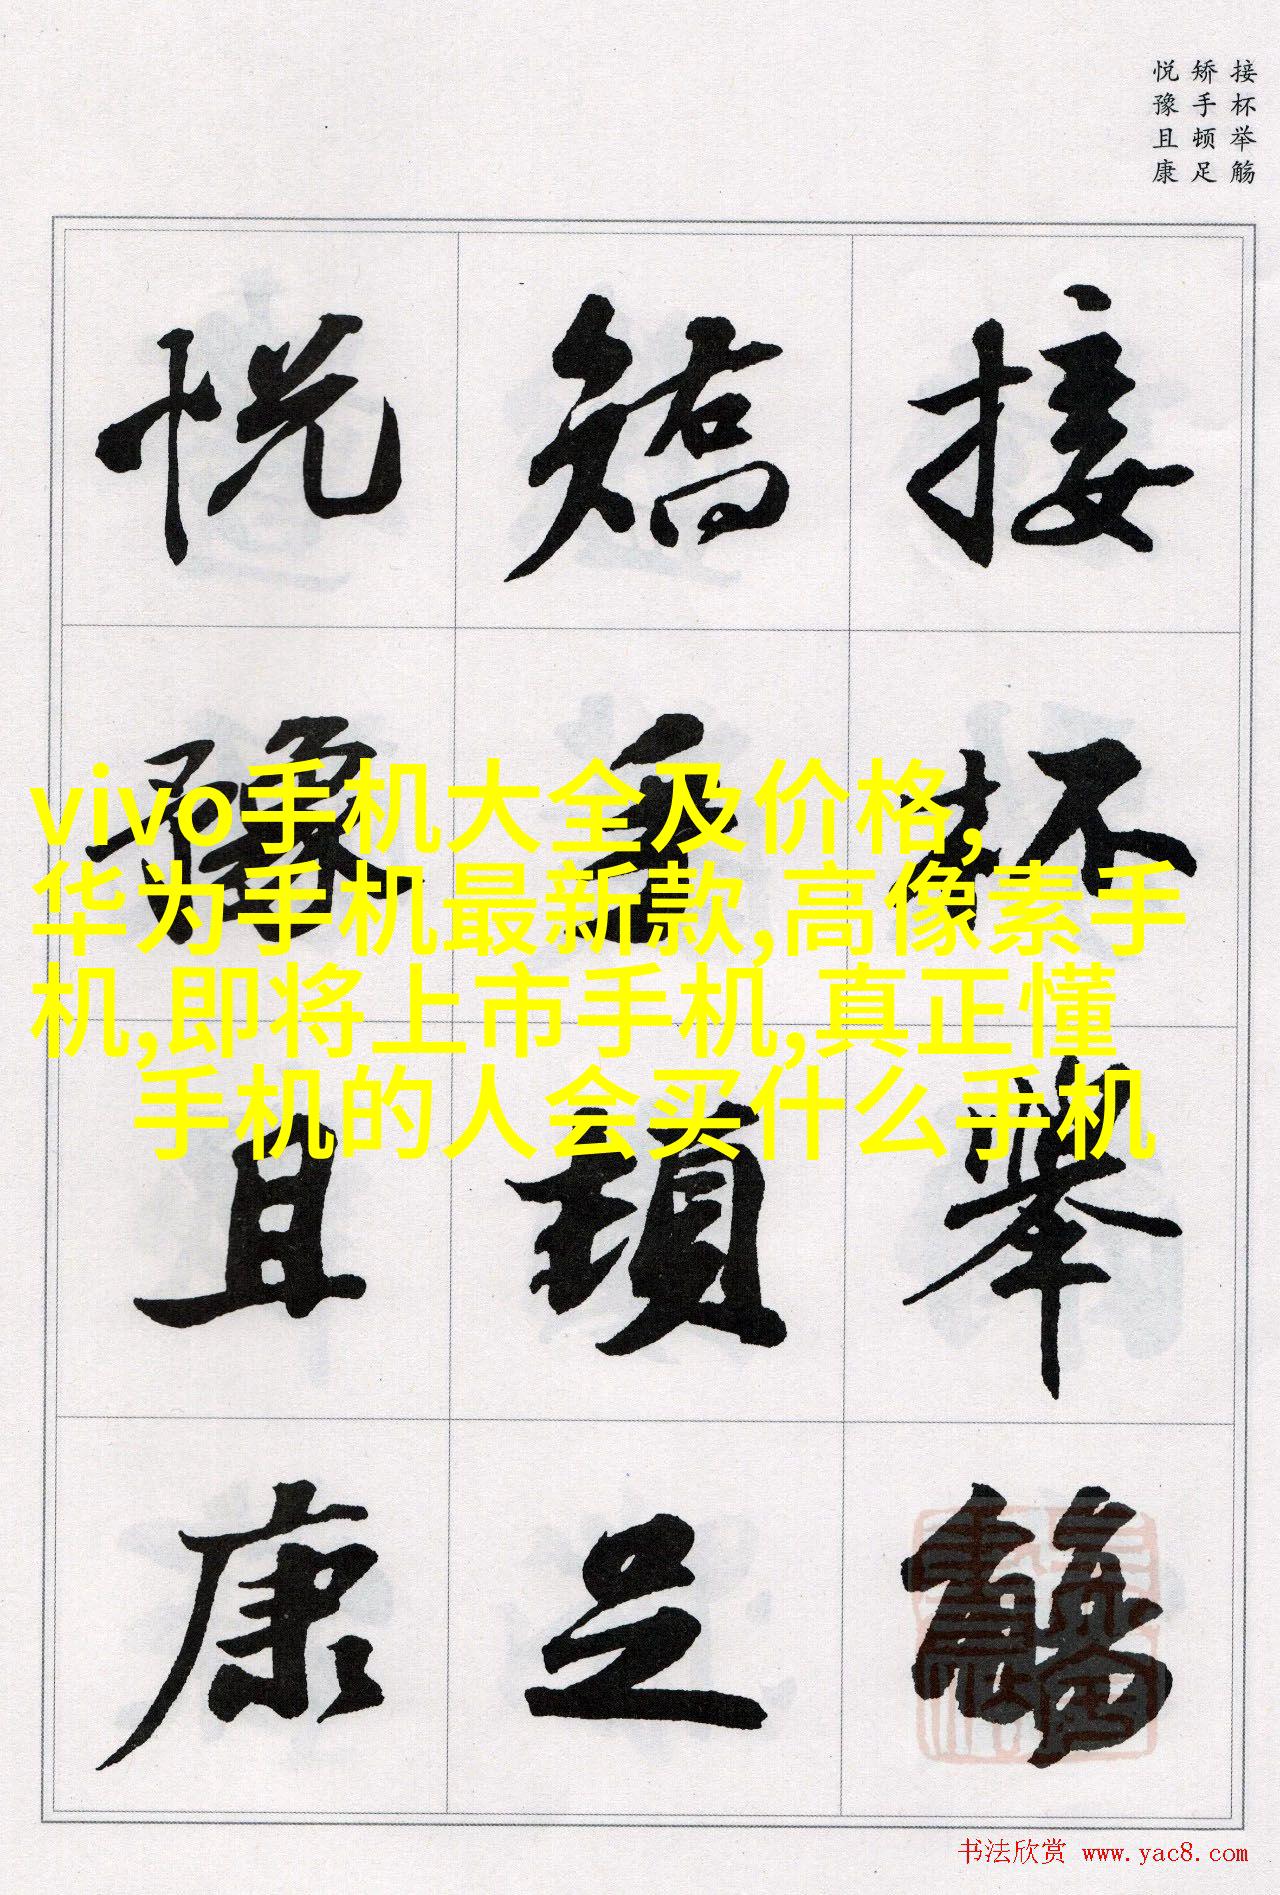 接杯举觞
矫手顿足
悦豫且康
接杯舉觴
矯手頓足
悦豫且康
vivo手机大全及价格,
华为手机最新款,高像素手
机,即将上市手机,真正懂
手机的人会买什么手机
书法欣赏 www.yac8.com